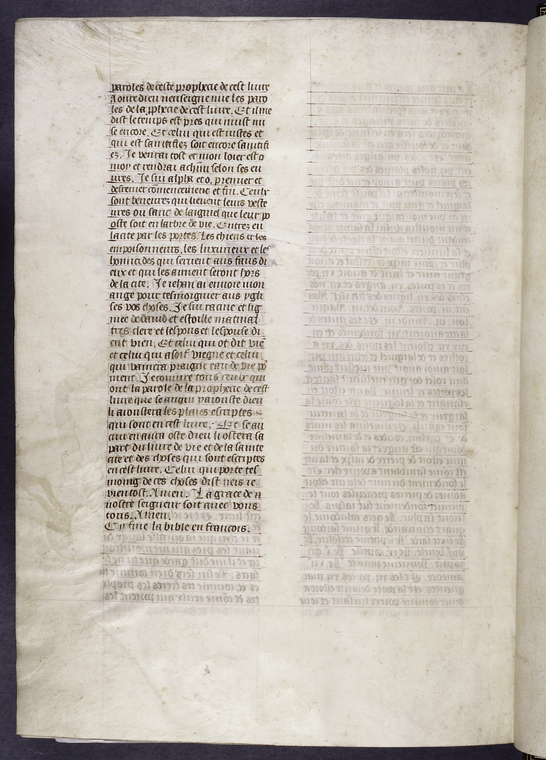 paroles de ceste prophecie de cest liure
Aoure dieu
les de la prophecie de cest liure. Et il me
dist le temps est pres qui nuist nui
se encore. Et celui qui est iustes et
qui est saintefiez soit encore saintifi
ez. Je venrai tost et mon loier est o
moy et rendrai a chũn selon ses eu
ures. Je sui alpha et o, premier et
desrenier commencement et fin. Ceulz
sont beneurez qui lieuent leurs veste
ures ou sanc de laignel que leur po
oste soit en larbre de vie. Et entrez en
la cite par les portes. Les chiens et les
empoisonneurs, les luxurieux et les
homicides qui seruent aus faus di
eux et qui les aiment seront hors
de la cite. Je iehan ai enuoie mon
ange pour tesmoignier aus ygli
ses vos choses. Je sui racine et lig
nee de dauid et estoille matinal
tres clere et lespous et lespouse di
ent vien. Et celui qui ot dit vien
et celui qui a soif viegne et celui
qui vaincra praigne eau de vie
ment. Je tous ceulx qui
oient la parole de la prophecie de cest
liure que se aucun dieu
li aioustera les plaies escriptes
qui sont en cest liure. Et se au
cun en aura oste dieu li ostera sa
part du liure de vie et de la sainte
cite et des choses qui sont escriptes
en cest liure. Celui qui porte tes
moing de ces choses dist ie
vien tost. Amen. La grace de n
nostre seigneur soit auec vous
tous. Amen.
Cy fine la bible en francois.